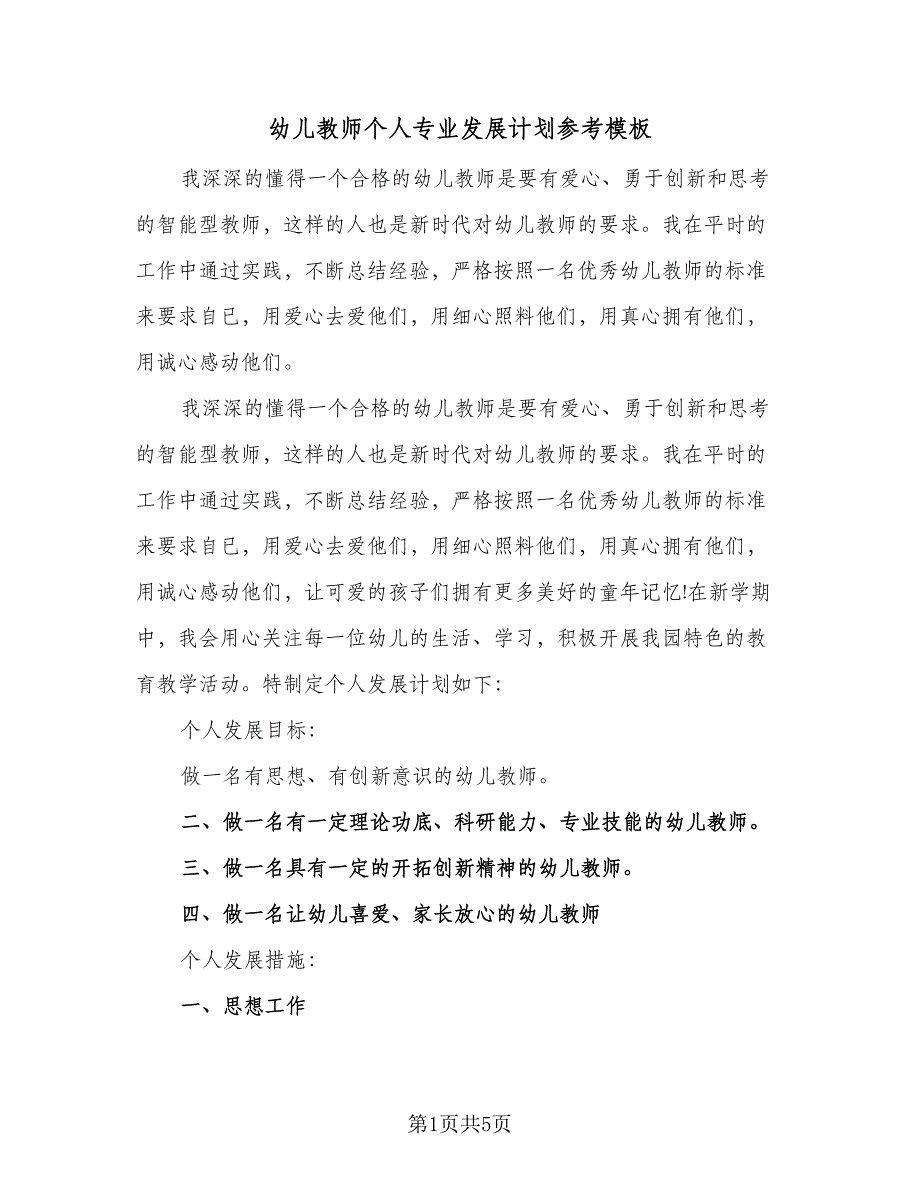 幼儿教师个人专业发展计划参考模板
我深深的懂得一个合格的幼儿教师是要有爱心、勇于创新和思考
的智能型教师，这样的人也是新时代对幼儿教师的要求。我在平时的
工作中通过实践，不断总结经验，严格按照一名优秀幼儿教师的标准
来要求自己，用爱心去爱他们，用细心照料他们，用真心拥有他们，
用诚心感动他们。
我深深的懂得一个合格的幼儿教师是要有爱心、勇于创新和思考
的智能型教师，这样的人也是新时代对幼儿教师的要求。我在平时的
工作中通过实践，不断总结经验，严格按照一名优秀幼儿教师的标准
来要求自己，用爱心去爱他们，用细心照料他们，用真心拥有他们，
用诚心感动他们，让可爱的孩子们拥有更多美好的童年记忆!在新学期
中，我会用心关注每一位幼儿的生活、学习，积极开展我园特色的教
育教学活动。特制定个人发展计划如下：
个人发展目标：
做一名有思想、有创新意识的幼儿教师。
二、做一名有一定理论功底、科研能力、专业技能的幼儿教师。
三、做一名具有一定的开拓创新精神的幼儿教师。
四、做一名让幼儿喜爱、家长放心的幼儿教师
个人发展措施：
一、思想工作
第1页共5页